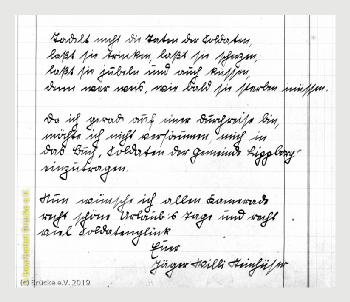 Tadelt nicht die Taten der Soldaten,
laßt sie trinken, laßt sie scherzen,
laßt sie jubeln und auch küssen,
denn wer weis, wie bald sie sterben müssen.
Da ich gerad auf einer Durchreise bin,
möchte ich nicht versäumen mich in
das Buch, Soldaten der Gemeinde Lippborg
einzutragen.
Nun wünsche ich allen Kamerade
recht schöne Urlaubs Tage und recht
viel Soldatenglück
Euer
Jäger Willi
(c) Brücke e.V. 2019